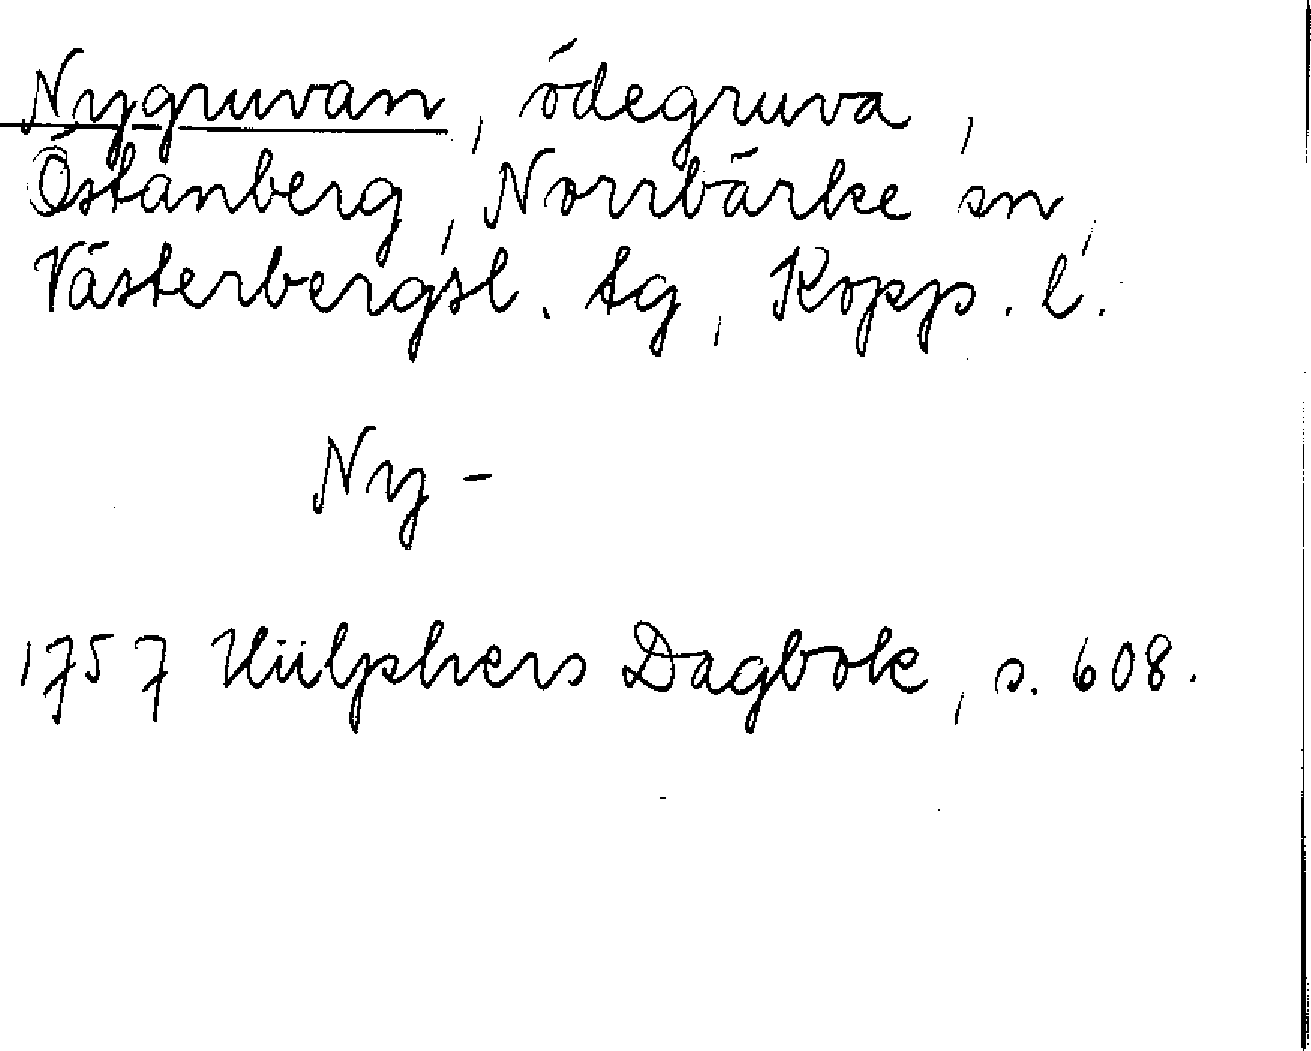 Nygruvan, ödegruva,
Östanberg, Norrbärke sn,
Västerbergsl. tg, Kopp. l.
Ny-
1757 Hülphers Dagbok, s. 608.